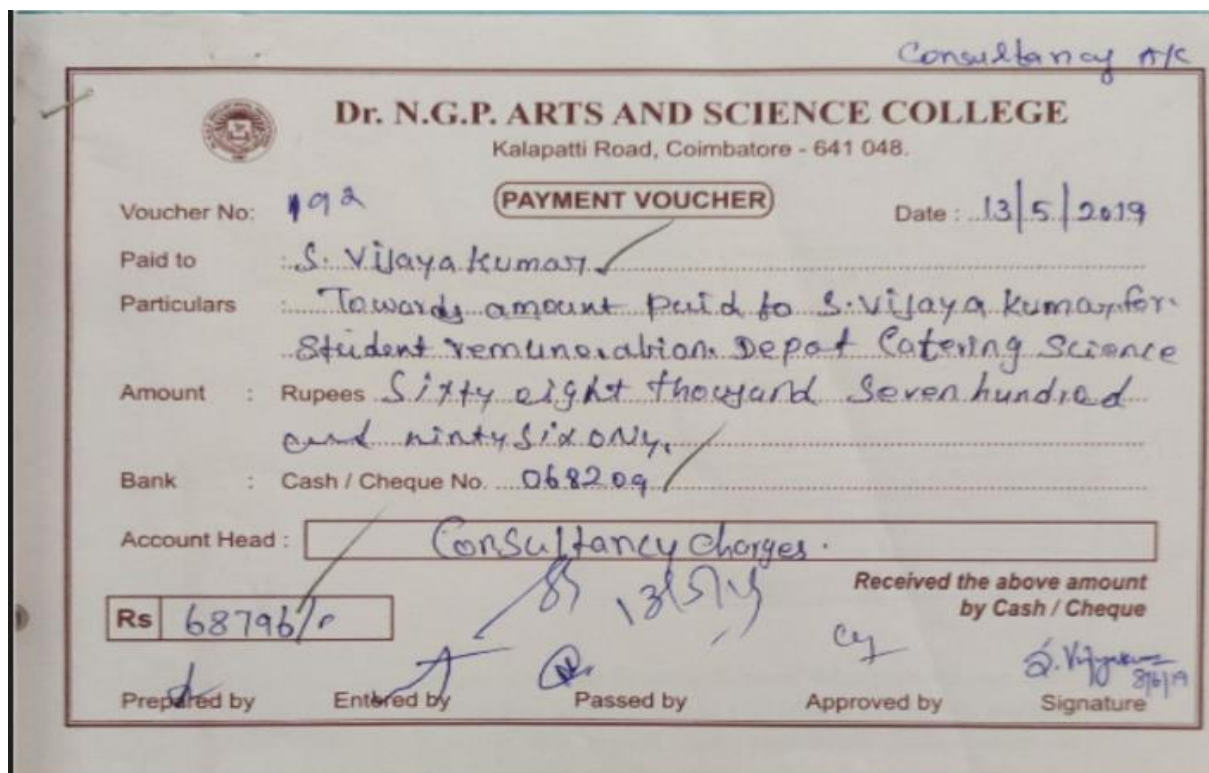 Consultancy A/c
Dr. N.G.P. ARTS AND SCIENCE COLLEGE
Kalapatti Road, Coimbatore - 641 048.
PAYMENT VOUCHER
Voucher No: 192 Date : 13/5/2019
Paid to : S. Vijaya Kumar
Particulars : Towards amount paid to S. Vijaya Kumar for
Student remuneration. Depot Catering Science
Amount : Rupees Sixty eight thousand Seven hundred
and ninty six only.
Bank : Cash / Cheque No. 068209
Account Head : Consultancy Charges.
13/5/19
Received the above amount
by Cash / Cheque
Rs 68796/-
S. Vijayakumar
8/6/19
Prepared by Entered by Passed by Approved by Signature